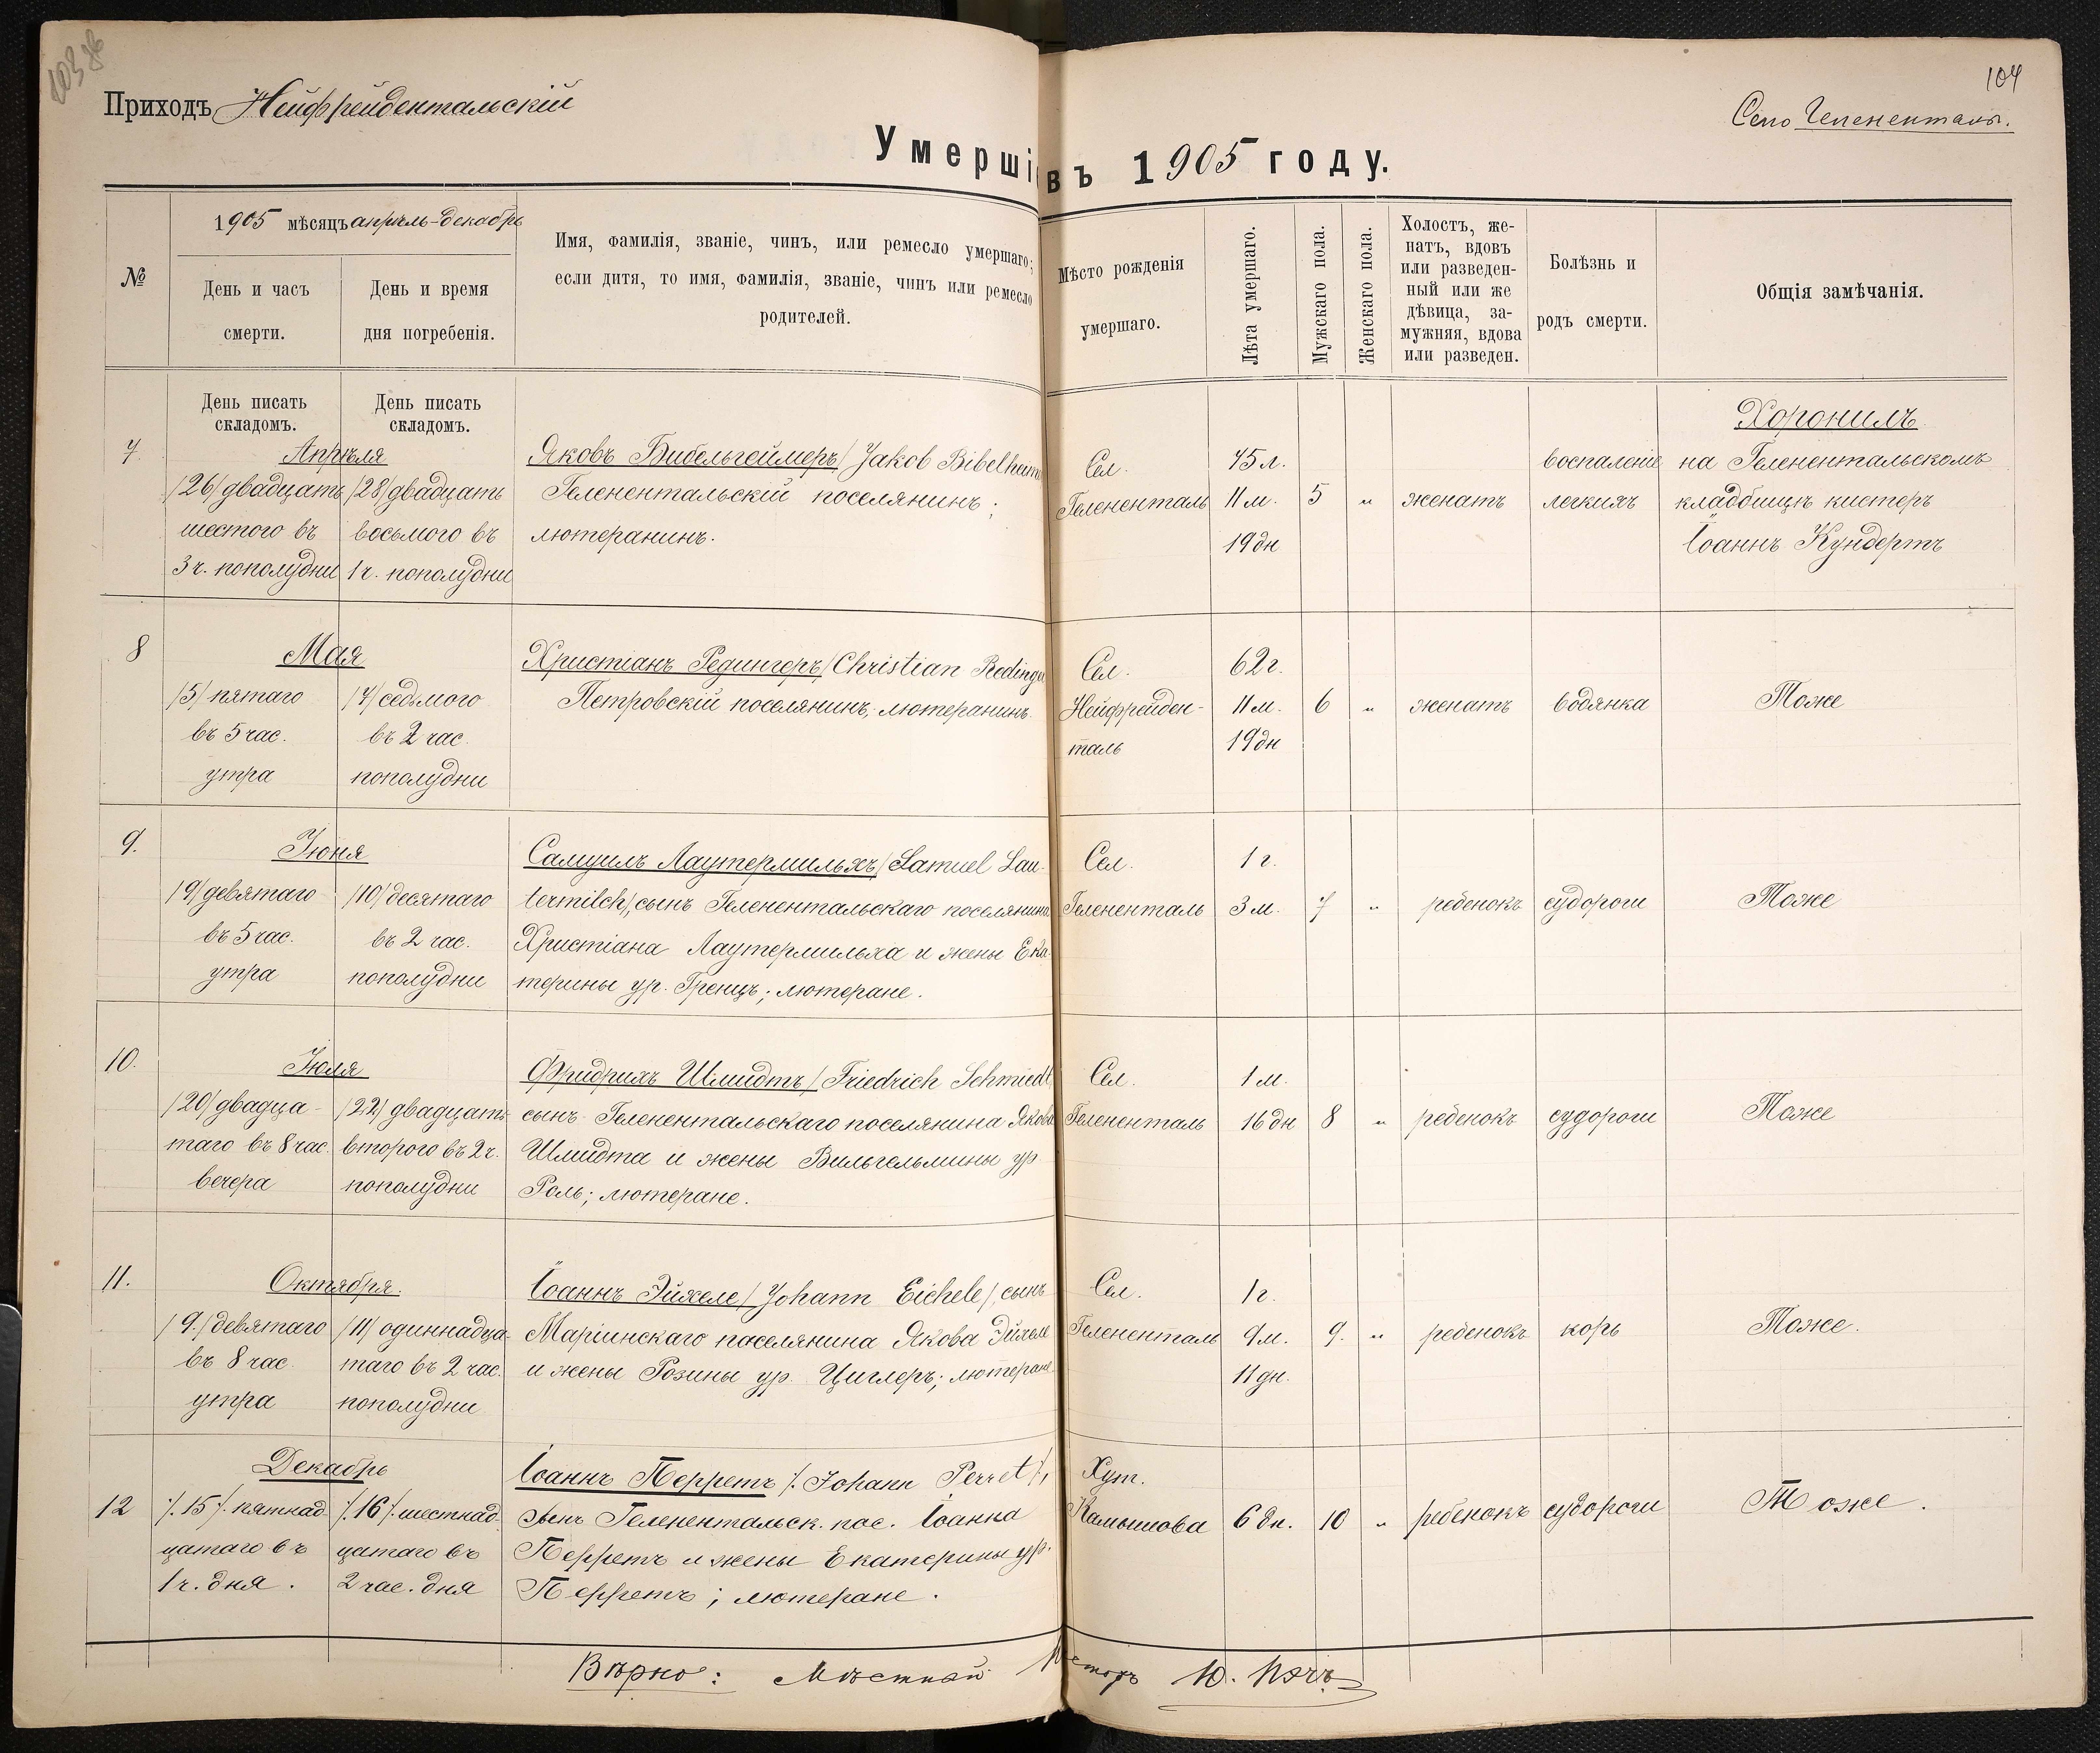 Приходъ Нейфрейдентальскій
104
Село Гелененталь.
Умершіе въ 1905 году.
№
1905 мѣсяцъ апрѣль-декабрь
День и часъ
смерти.
День и время
дня погребенія.
Имя, фамилія, званіе, чинъ, или ремесло умершаго;
если дитя, то имя, фамилія, званіе, чинъ или ремесло
родителей.
Мѣсто рожденія
умершаго.
Лѣта умершаго.
Мужскаго пола.
Женскаго пола.
Холостъ, же-
натъ, вдовъ
или разведен-
ный или же
дѣвица, за-
мужняя, вдова
или разведен.
Болѣзнь и
родъ смерти.
Общія замѣчанія.
День писать
складомъ.
День писать
складомъ.
7
Апрѣля
/26/ двадцать
шестого въ
3 ч. пополудни
/28/ двадцать
восьмого въ
1 ч. пополудни
Яковъ Бибельгеймеръ / Jakob Bibelheim
Геленентальскій поселянинъ;
лютеранинъ.
Сел.
Гелененталь
45 л.
11 м.
19 дн
5
"
женатъ
воспаленіе
легкихъ
Хоронилъ
на Геленентальскомъ
кладбищѣ кистеръ
Іоаннъ Кундертъ
8
Мая
/5/ пятаго
въ 5 час.
утра
/7/ седьмого
въ 2 час.
пополудни
Христіанъ Редингеръ / Christian Redinge
Петровскій поселянинъ; лютеранинъ
Сел.
Нейфрейден-
таль
62 г.
11 м.
19 дн
6
"
женатъ
водянка
Тоже
9.
Іюня
/9/ девятаго
въ 5 час.
утра
/10/ десятаго
въ 2 час.
пополудни
Самуилъ Лаутермильхъ / Samuel Lau-
termilch/, сынъ Геленентальскаго поселянина
Христіана Лаутермильха и жены Ека-
терины ур. Гренцъ; лютеране.
Сел.
Гелененталь
1 г.
3 м.
7
"
ребенокъ
судороги
Тоже
10.
Іюля
/20/ двадца-
таго въ 8 час.
вечера
/22/ двадцать
второго въ 2 ч.
пополудни
Фридрихъ Шмидтъ / Friedrich Schmiedt
сынъ Геленентальскаго поселянина Якова
Шмидта и жены Вильгельмины ур.
Роль; лютеране.
Сел.
Гелененталь
1 м.
16 дн
8
"
ребенокъ
судороги
Тоже
11.
Октября.
/9./ девятаго
въ 8 час.
утра
/11/ одиннадца-
таго въ 2 час.
пополудни
Іоаннъ Эйхеле / Johann Eichele/, сынъ
Маріинскаго поселянина Якова Эйхеле
и жены Розины ур. Циглеръ; лютеране
Сел.
Гелененталь
1 г.
9 м.
11 дн.
9.
"
ребенокъ
корь
Тоже.
12
Декабрь
/.15/. пятнад-
цатаго въ
1 ч. дня.
/.16/. шестнад-
цатаго въ
2 час. дня
Іоаннъ Перретъ /. Johann Perret /,
сынъ Геленентальск. пос. Іоанна
Перретъ и жены Екатерины ур.
Перретъ; лютеране.
Хут.
Камышова
6 дн.
10
"
ребенокъ
судороги
Тоже.
Вѣрно: Мѣстный Пасторъ